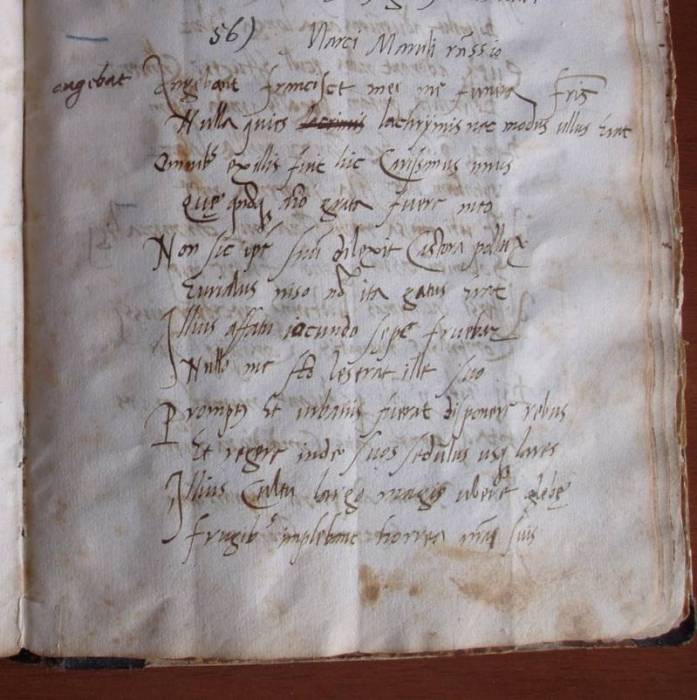 56) Marci Maruli
angebat Angebant francisce mei me funera fris
Nulla quies lacrimis lachrymis nec modus ullus erat
Omnib' ex illis fuit hic Carissimus unus
Que grata fuere meo
Non sic ipse suum dilexit Castora pollux
Eurialus niso nō ita gratus erat
Illius affatu iocundo sepe fruebar
Nullo me leserat ille suo
Promptus Et urbanis fuerat disponere rebus
Et regere inde suos sedulus usq lares
Illius Cultu largo magis ubere glebe
frugib' implebant horrea suis